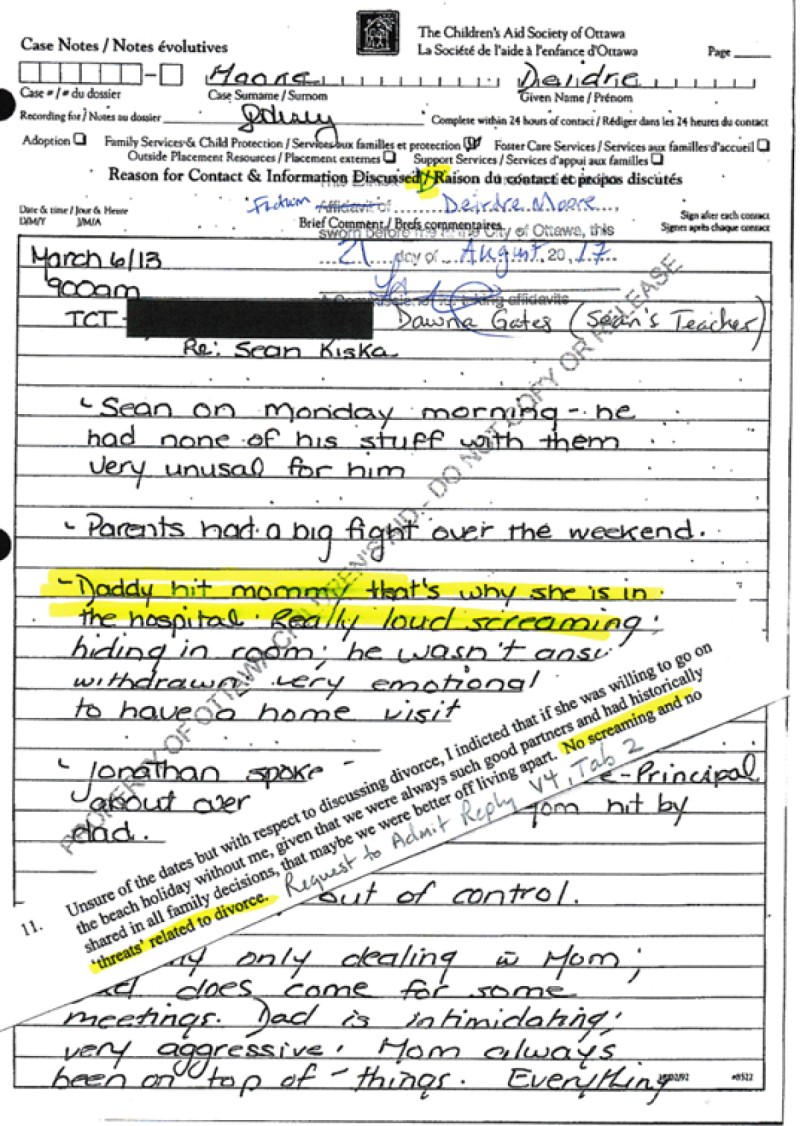 The Children's Aid Society of Ottawa
Case Notes / Notes évolutives
La Société de l'aide à l'enfance d'Ottawa
Page
Moore Deirdre
Case # / # du dossier Case Surname / Surnom Given Name / Prénom
Recording for / Notes au dossier Complete within 24 hours of contact / Rédiger dans les 24 heures du contact
Adoption Family Services & Child Protection / Services aux familles et protection Foster Care Services / Services aux familles d'accueil
Outside Placement Resources / Placement externes Support Services / Services d'appui aux familles
Reason for Contact & Information Discussed / Raison du contact et propos discutés
Factum Affidavit of Deirdre Moore
Date & time / Jour & Heure
D/M/Y J/M/A
Brief Comment / Brefs commentaires
Sign after each contact
Signer après chaque contact
sworn before me at the City of Ottawa, this
21 day of August, 20 17
A Commissioner for taking affidavits
March 6/13
900am
TCT - Dawna Gates (Sean's Teacher)
Re: Sean Kiska
- Sean on monday morning - he
had none of his stuff with them
very unusal for him
- Parents had a big fight over the weekend.
- Daddy hit mommy that's why she is in
the hospital. Really loud screaming;
hiding in room; he wasn't
withdrawn very emotional
to have a home visit
- Jonathan spoke - -Principal
about over hit by
dad.
out of control.
only dealing w Mom;
does come for some
meetings. Dad is intimidating;
very aggressive. Mom always
been on top of - things. Everything
02/92 #8522
PROPERTY OF OTTAWA CHILDREN'S AID - DO NOT COPY OR RELEASE
11. Unsure of the dates but with respect to discussing divorce, I indicted that if she was willing to go on
the beach holiday without me, given that we were always such good partners and had historically
shared in all family decisions, that maybe we were better off living apart. No screaming and no
'threats' related to divorce. Request to Admit Reply V4, Tab 2